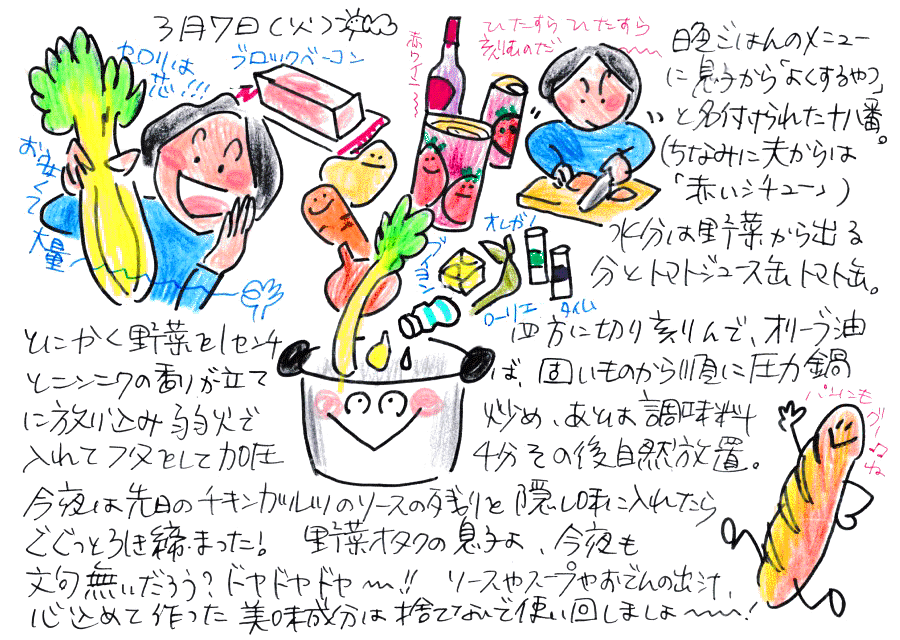 3月7日(火)
セロリは
恋!!!
お安くて
大量
ブロックベーコン
赤ワイン〜
ひたすら ひたすら
刻むのだ
晩ごはんのメニュー
に息子から「よくするやつ」
と名付けられた十八番。
(ちなみに夫からは
「赤いシチュー」)
水分は野菜から出る
分とトマトジュース缶トマト缶。
ブイヨン
オレガノ
ローリエ
タイム
とにかく野菜を1センチ四方に切り刻んで、オリーブ油
とニンニクの香りが立てば、固いものから順に圧力鍋
に放り込み弱火で炒め、あとは調味料
入れてフタをして加圧4分その後自然放置。
パンにも
グーよね
今夜は先日のチキンガルツのソースの残りを隠し味に入れたら
ぐぐっと引き締まった! 野菜オタクの息子よ、今夜も
文句無いだろう?ドヤドヤドヤ〜!! ソースやスープやおでんの出汁、
心込めて作った美味成分は捨てないで使い回しましょ〜〜!